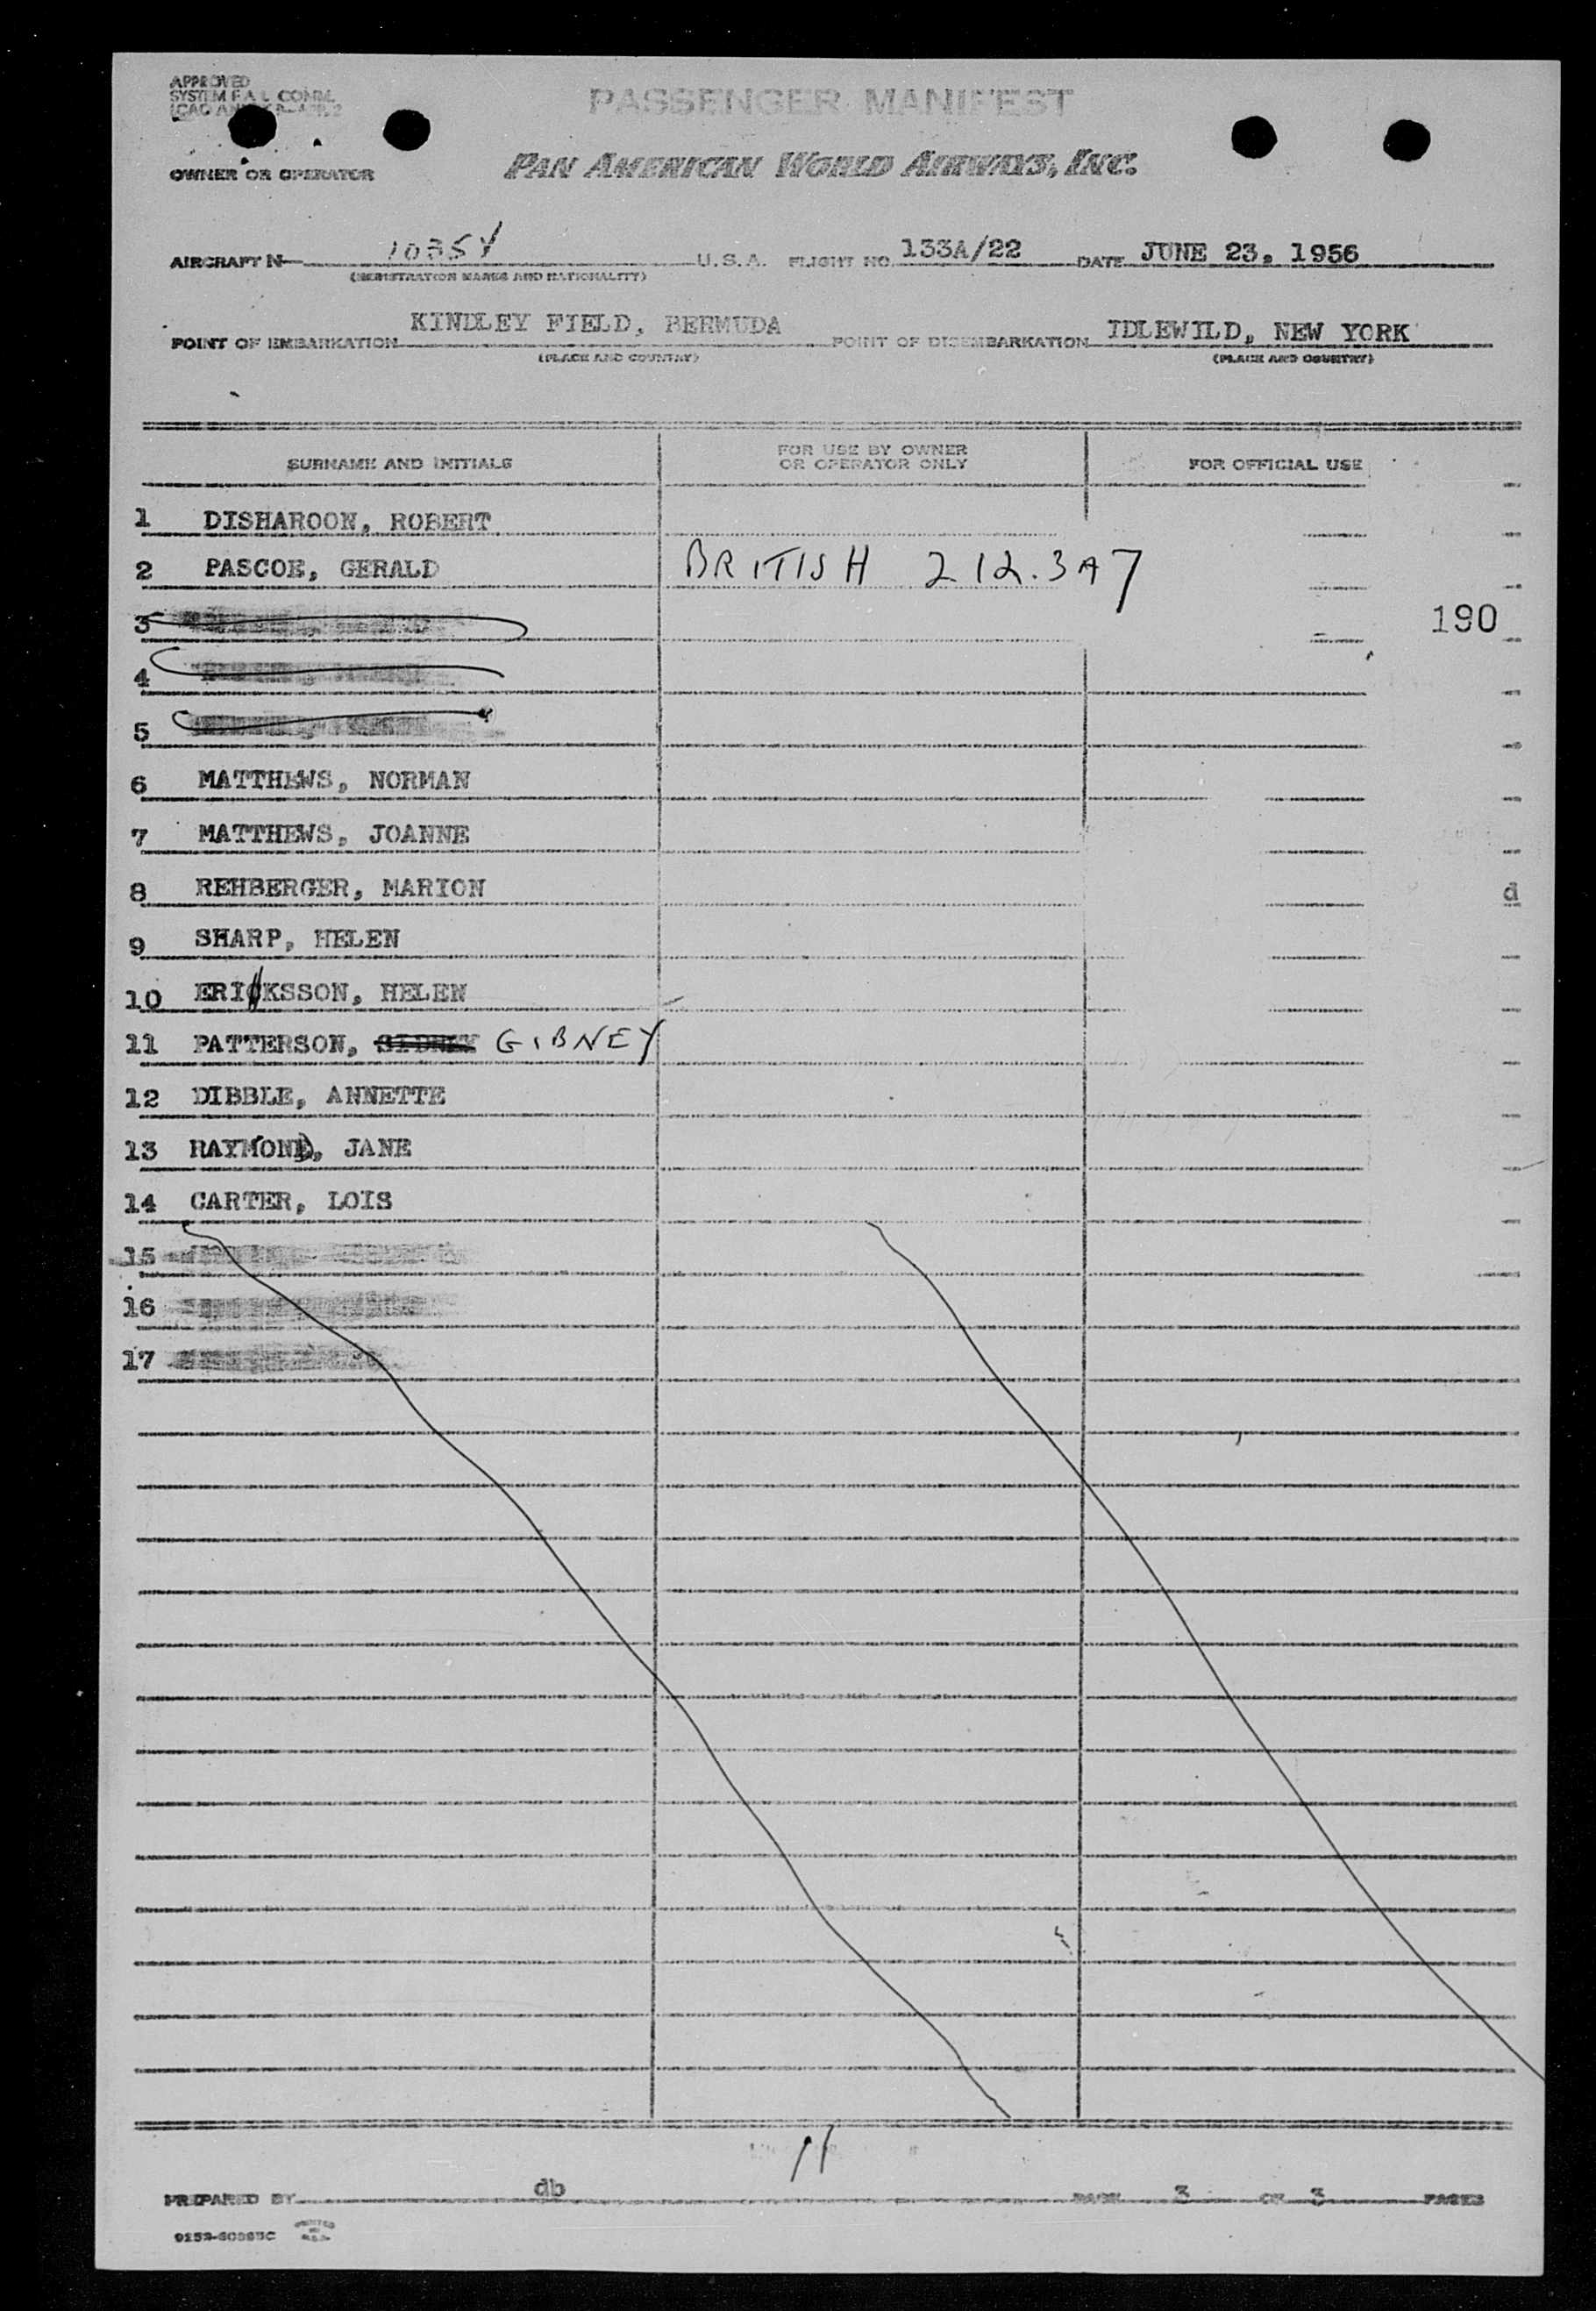 APPROVED
SYSTEM F.A.L. COMM.
PASSENGER MANIFEST
OWNER OR OPERATOR
PAN AMERICAN WORLD AIRWAYS, INC.
AIRCRAFT N 1035V U.S.A. FLIGHT NO. 133A/22 DATE JUNE 23, 1956
(REGISTRATION MARKS AND NATIONALITY)
POINT OF EMBARKATION KINDLEY FIELD, BERMUDA POINT OF DISEMBARKATION IDLEWILD, NEW YORK
(PLACE AND COUNTRY) (PLACE AND COUNTRY)
SURNAME AND INITIALS FOR USE BY OWNER OR OPERATOR ONLY FOR OFFICIAL USE
1 DISHAROON, ROBERT
2 PASCOE, GERALD BRITISH 212.3A7
3 190
4
5
6 MATTHEWS, NORMAN
7 MATTHEWS, JOANNE
8 REHBERGER, MARION d
9 SHARP, HELEN
10 ERICKSSON, HELEN
11 PATTERSON, SIDNEY GIBNEY
12 DIBBLE, ANNETTE
13 RAYMOND, JANE
14 CARTER, LOIS
15
16
17
11
PREPARED BY db PAGE 3 OF 3 PAGES